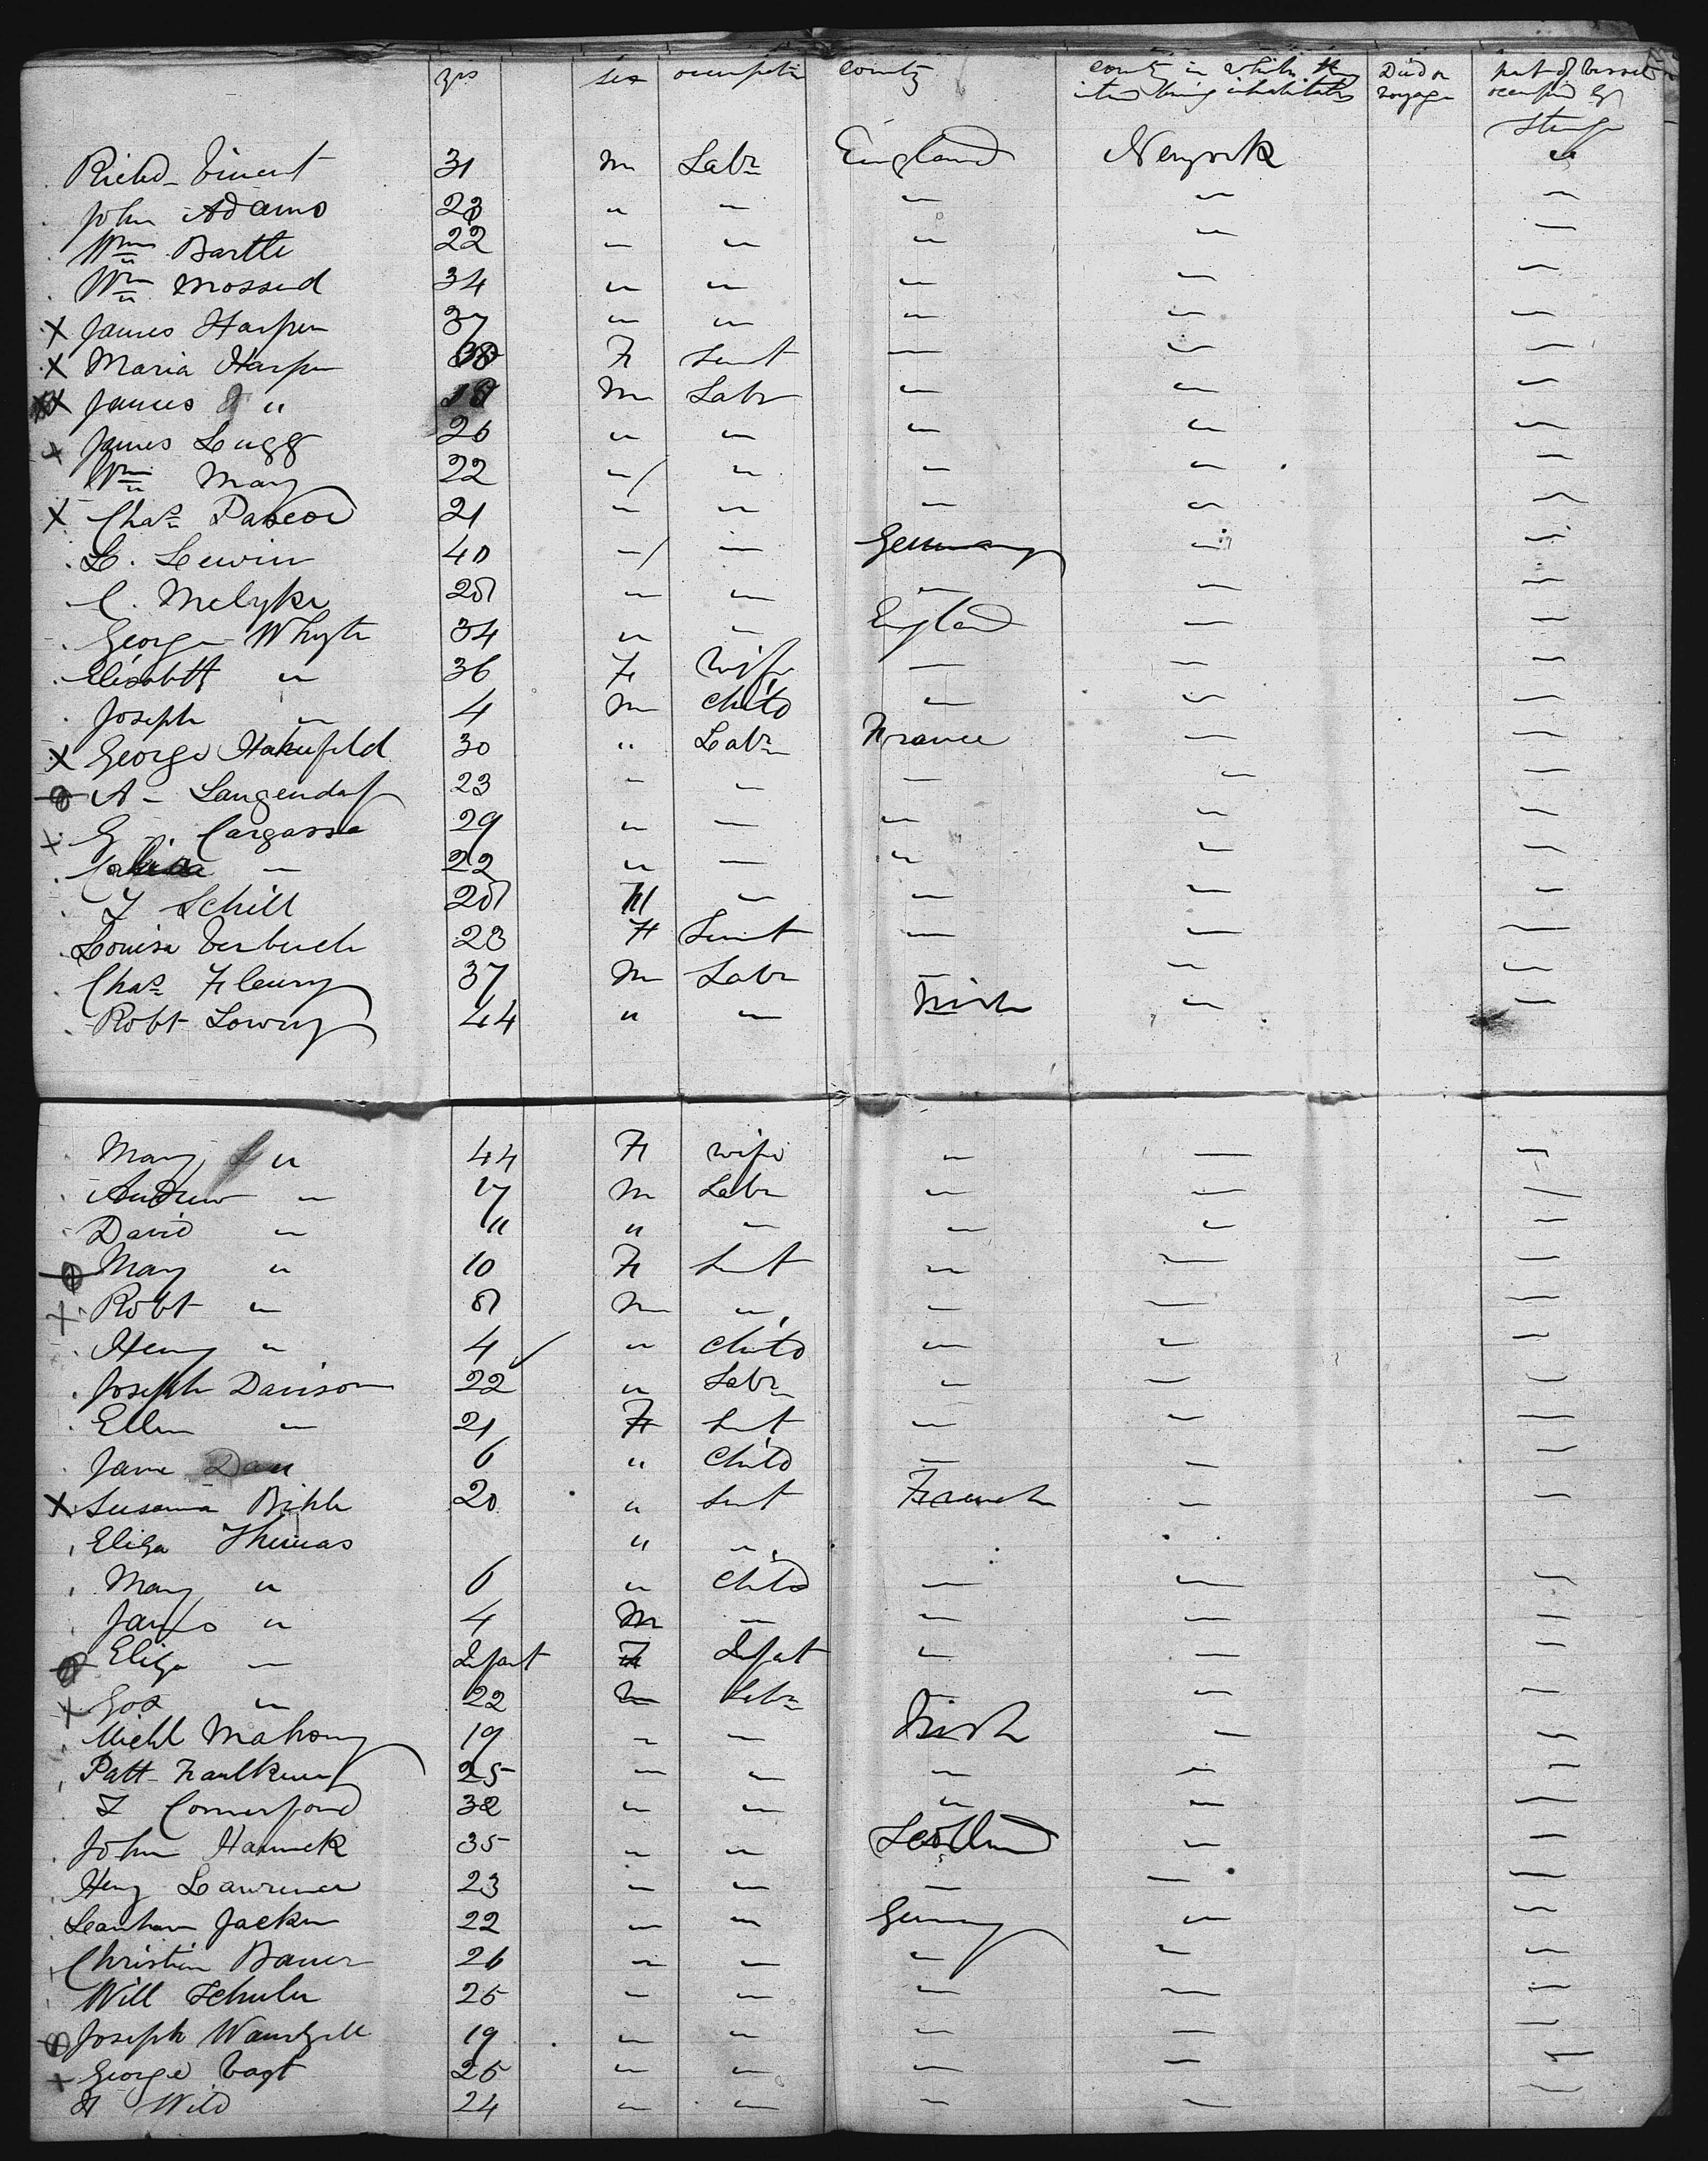 yrs sex occupatn county county in which they intend being inhabitats Died on voyage part of vessel occupied by
Steerage
Richd Vincent 31 m Labr England Newyork "
John Adams 28 " " " " "
Wm Bartle 22 " " " " "
Wm Mossend 34 " " " " "
X James Harper 37 " " " " "
X Maria Harper 38 F Sernt " " "
X James " 18 m Labr " " "
+ James Lugg 26 " " " " "
Wm May 22 " / " " " "
X Chas Pascoe 21 " " " " "
L. Lewin 40 " / " Germany " "
C. Melyke 28 " " " " "
George Whyte 34 " " England " "
Elisabeth " 36 F Wife " " "
Joseph " 4 m child " " "
X George Hakufeld 30 " Labr France " "
A - Langendorf 23 " " " " "
+ G. Cargassa 29 " " " " "
" 22 " " " " "
J Schill 28 M " " " "
Louisa Verbuch 23 F Sernt " " "
Chas Fleury 37 m Labr " " "
Robt Lowry 44 " " Irish " "
Mary " 44 F wife " " "
Andrew " 17 m Labr " " "
David " 11 " " " " "
Mary " 10 F Sernt " " "
+ Robt " 8 m " " " "
Henry " 4 " child " " "
Joseph Davison 22 " Labr " " "
Ellen " 21 F Sernt " " "
Jane Dau 6 " child " " "
X Susanna Bihle 20 " Sernt French " "
Eliza Thomas " "
Mary " 6 " child " " "
James " 4 M " " " "
Eliza " Infant F Infant " " "
+ " 22 m Labr " " "
Michl Mahony 19 " " Irish " "
Patt Faulkner 25 " " " " "
J Comerford 32 " " " " "
John Hannck 35 " " Scotland " "
Heny Lawrence 23 " " " " "
Leanhan Jackn 22 " " Germany " "
Christian Bauer 26 " " " " "
Will Schuler 25 " " " " "
Joseph Wantzell 19 " " " " "
+ George Vogt 25 " " " " "
H Wild 24 " " " " "